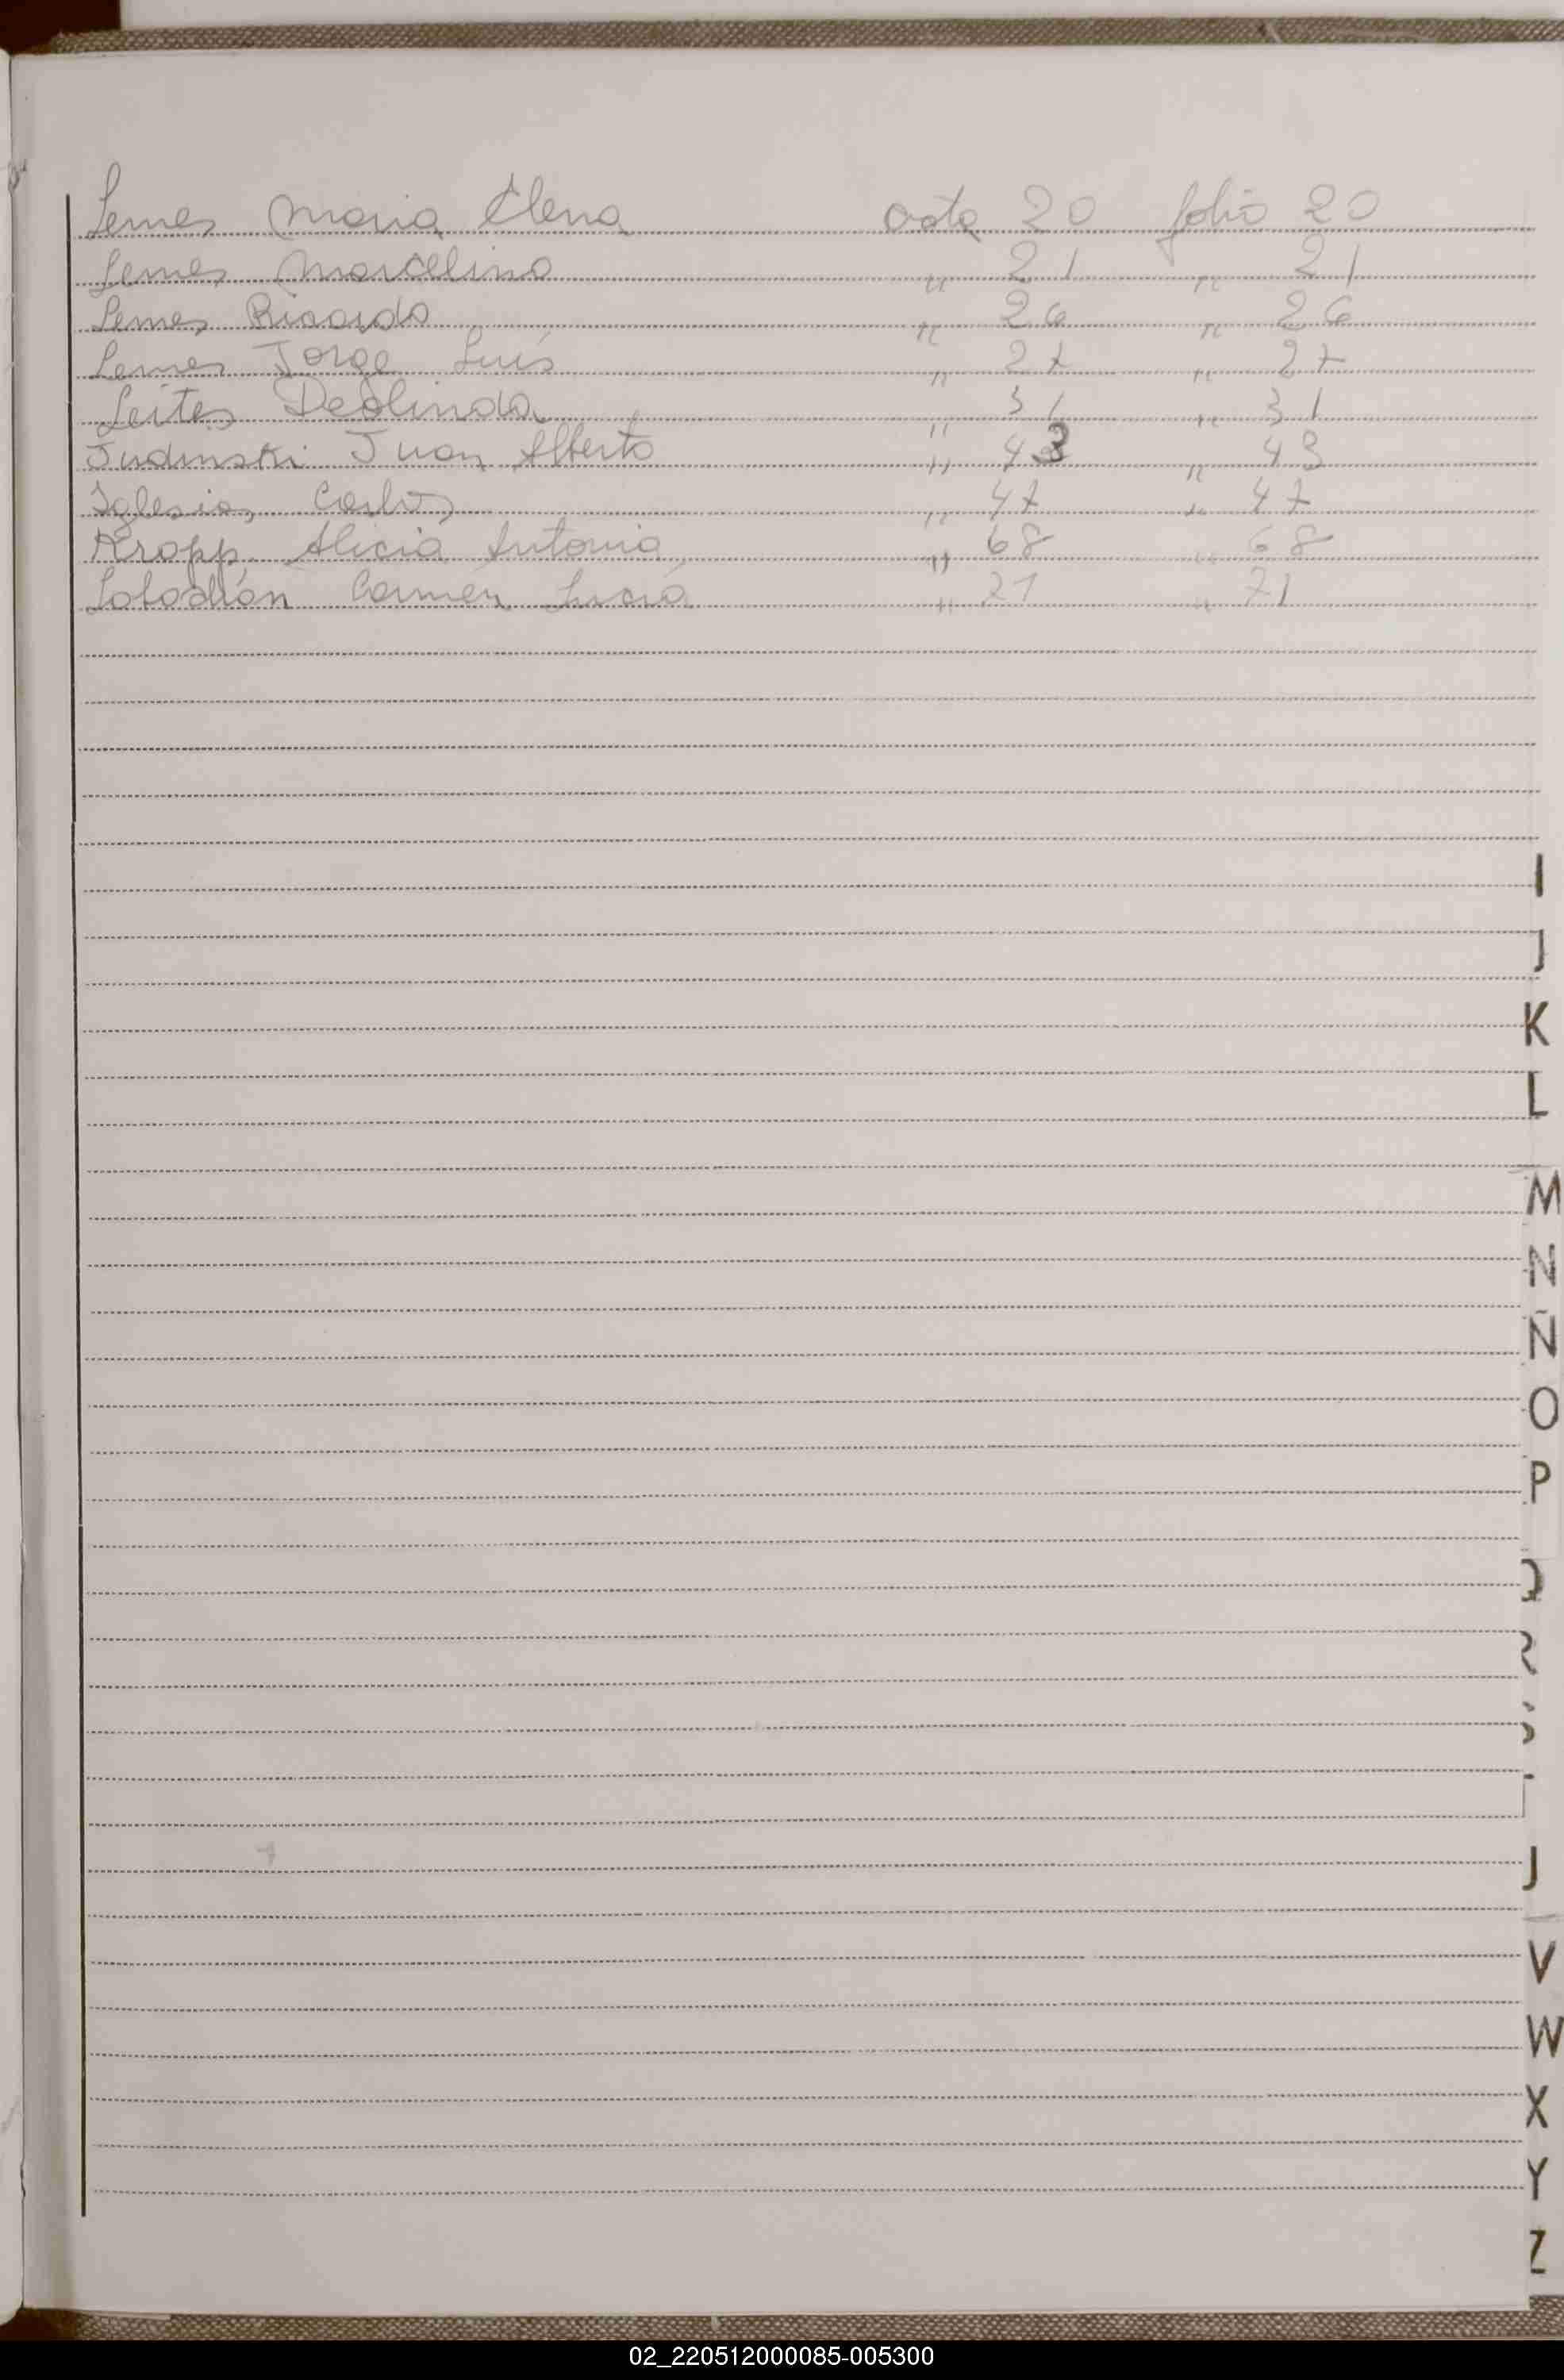 Lemes Maria Elena acta 20 folio 20
Lemes Marcelino " 21 " 21
Lemes Ricardo " 26 " 26
Lemes Jorge Luis " 27 " 27
Leites Deolinda " 31 " 31
Judinski Juan Alberto " 43 " 43
Iglesias Carlos " 47 " 47
Kropp Alicia Antonia " 68 " 68
Carmen Lucia " 71 " 71
I
J
K
L
M
N
Ñ
O
P
Q
R
S
T
U
V
W
X
Y
Z
02_220512000085-005300